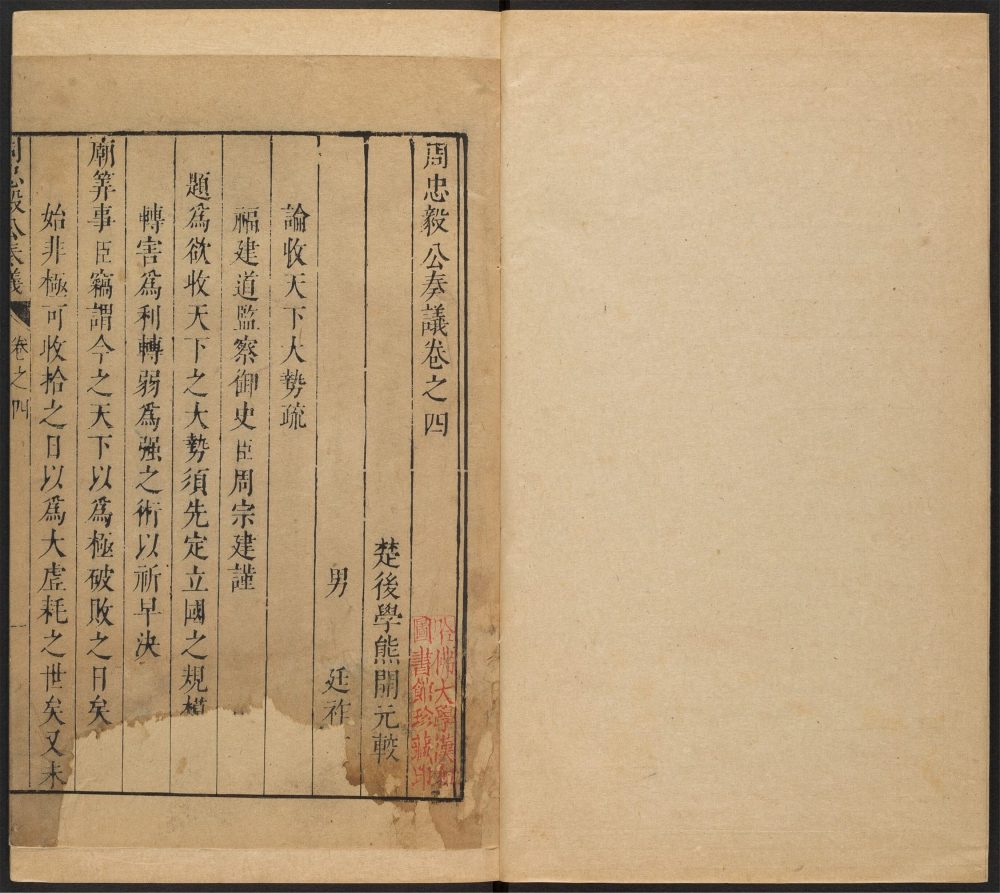 周忠毅公奏議卷之四
楚後學熊開元較
男 廷祚
論收天下大勢疏
福建道監察御史臣周宗建謹
題爲欲收天下之大勢須先定立國之規模
轉害爲利轉弱爲强之術以祈早決
廟筭事臣竊謂今之天下以爲極破敗之日矣
始非極可收拾之日以爲大虛耗之世矣又未
周忠毅公奏議 卷之四 一
哈佛大學漢和
圖書館珍藏印